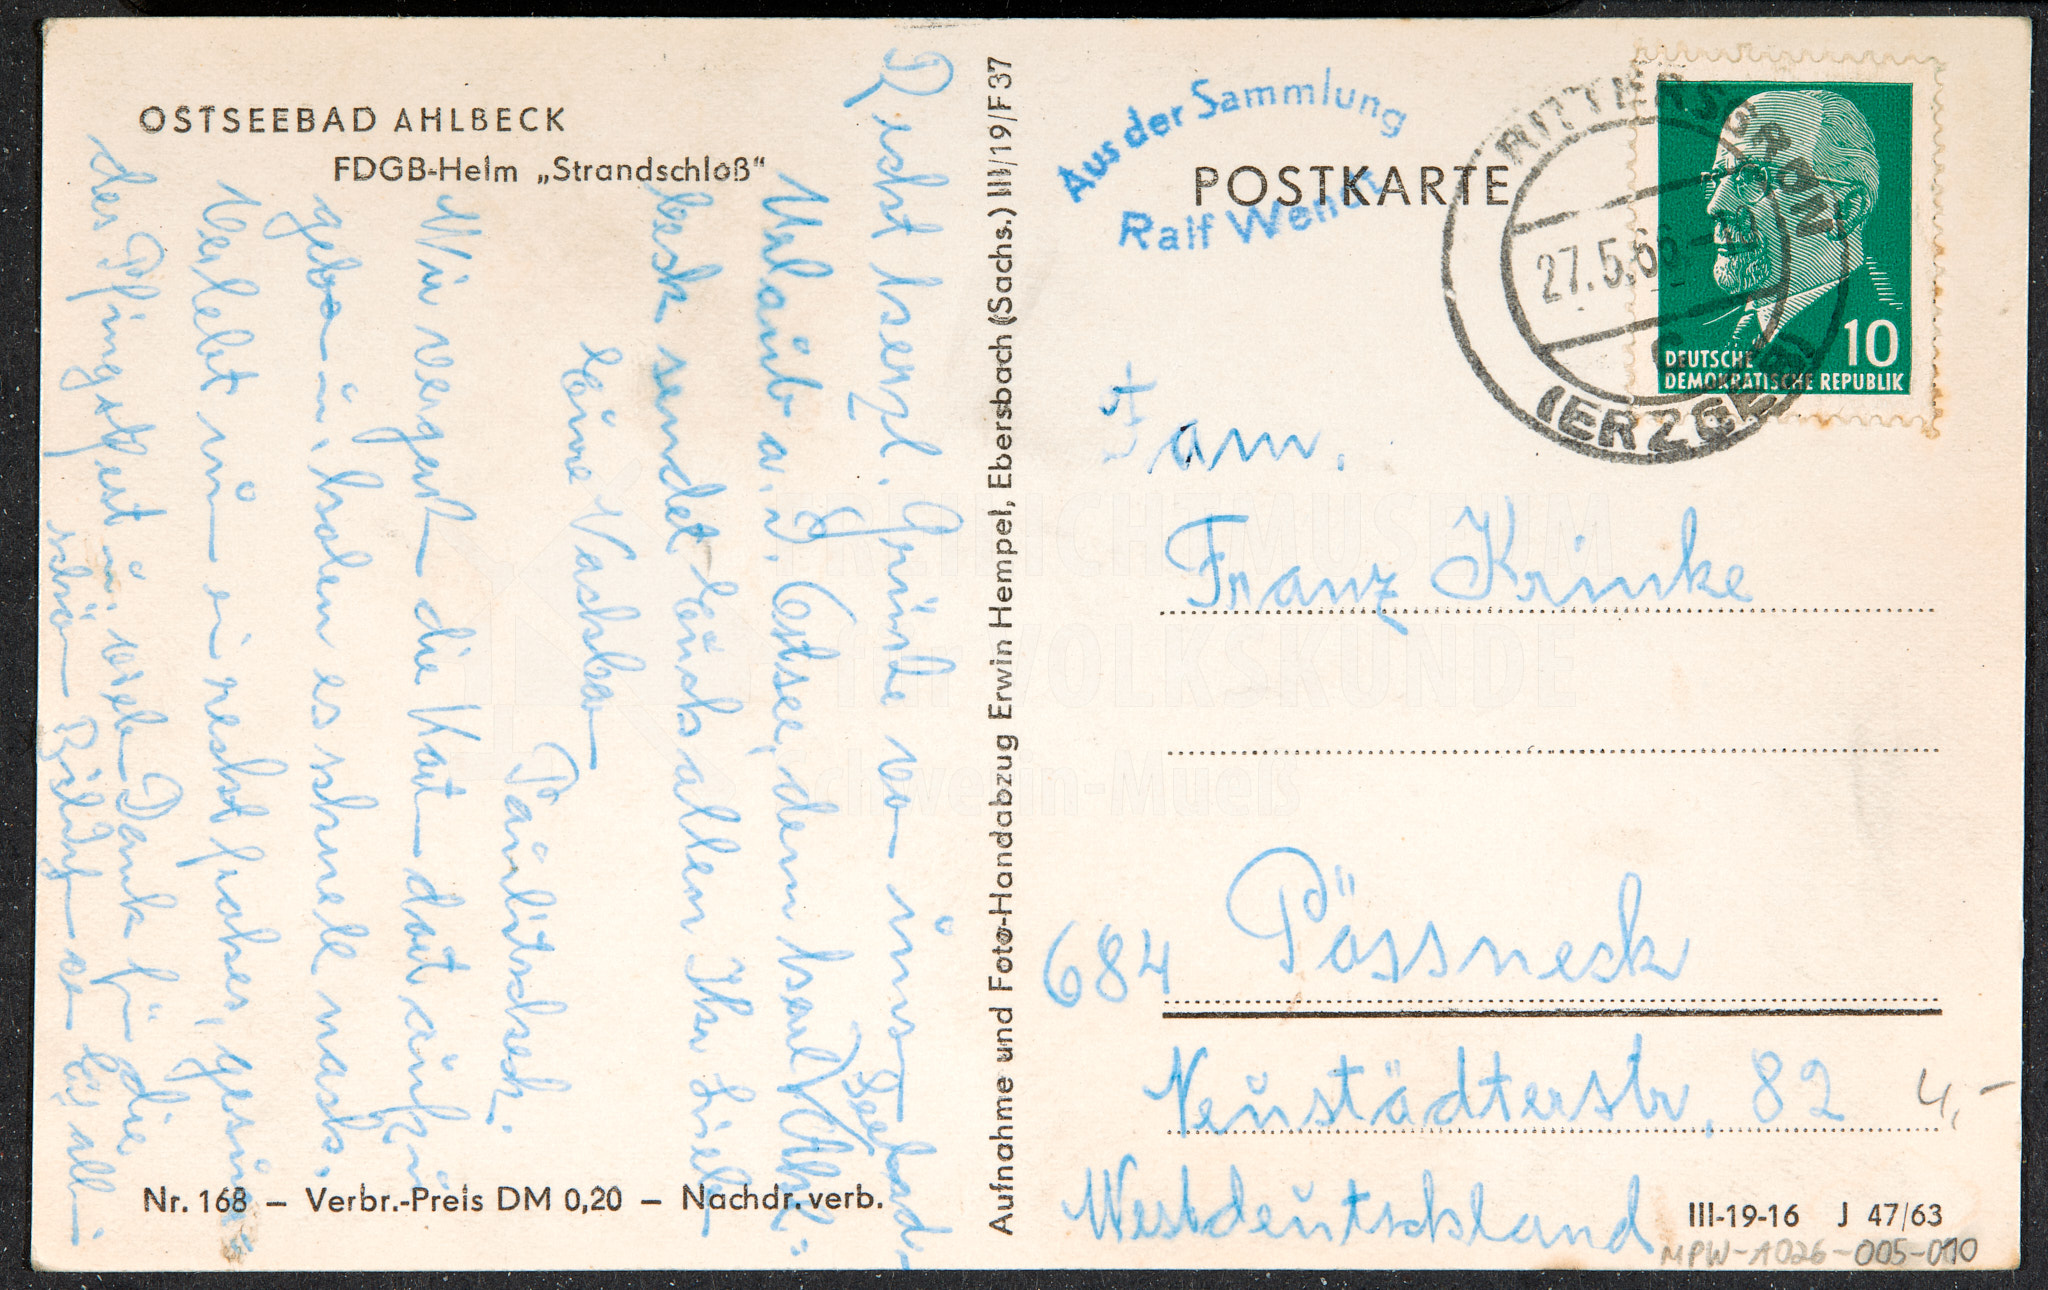 OSTSEEBAD AHLBECK
FDGB-Heim „Strandschloß“
Recht herzl. Grüße von uns
Urlaub a. d. Ostsee, dem Seebad Ahl-
beck sendet Euch allen Ihr Lieben
Eure Nachbarn
Paulitscheck.
Wir vergaß die Kart dort aufzu
geben u. holen es schnell nach.
Verlebt nur ein recht frohes, gesundes
Pfingstfest u. vielen Dank für die
schön
Nr. 168 – Verbr.-Preis DM 0,20 – Nachdr. verb.
Aufnahme und Foto-Handabzug Erwin Hempel, Ebersbach (Sachs.) III/19/F37
Aus der Sammlung
Ralf Wendt
POSTKARTE
RITTERSGRÜN
27.5.66
(ERZGEB)
10
DEUTSCHE
DEMOKRATISCHE REPUBLIK
Fam.
Franz Krinke
684 Pössneck
Neustädterstr. 82
4,-
Westdeutschland
III-19-16 J 47/63
MPW-1026-005-010
FREILICHTMUSEUM
für VOLKSKUNDE
Schwerin-Mueß